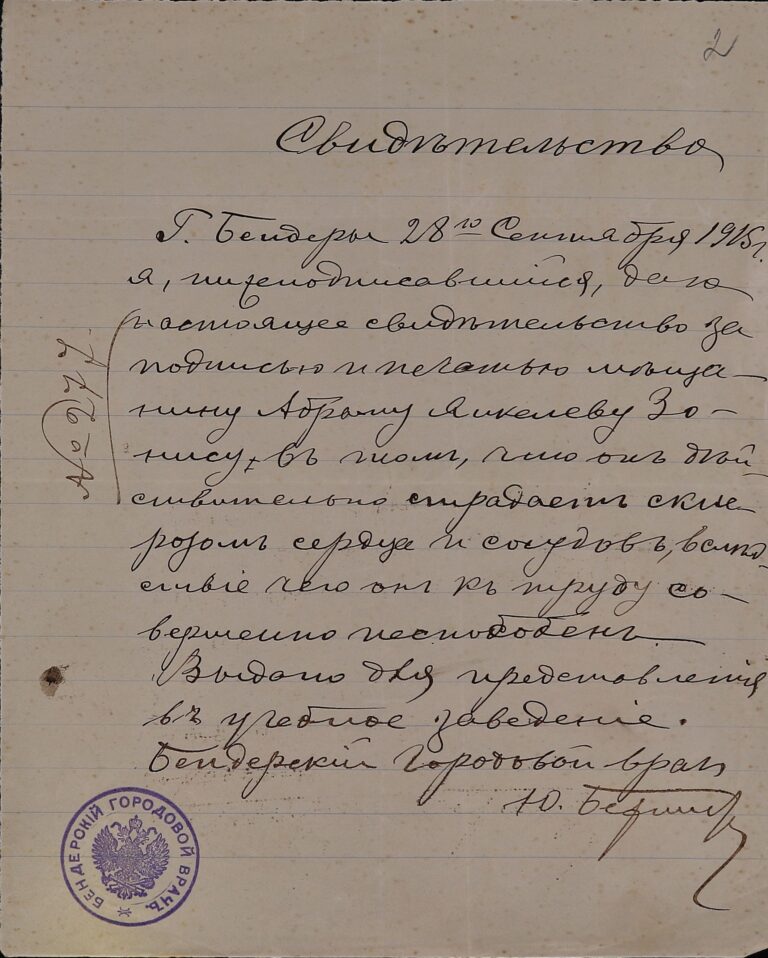 2
Свидѣтельство
Г. Бендеры 28го Сентября 1915 г.
я, нижеподписавшійся, даю
настоящее свидѣтельство за
подписью и печатью мѣща-
нину Абраму Янкелеву Зо-
нису, въ томъ, что онъ дѣй-
ствительно страдаетъ скле-
розомъ сердца и сосудовъ, вслѣд-
ствіе чего онъ къ труду со-
вершенно неспособенъ
Выдано для представленія
въ учебное заведеніе.
Бендерскій Городовой врач
Ю.
№
БЕНДЕРСКІЙ ГОРОДОВОЙ ВРАЧЪ.